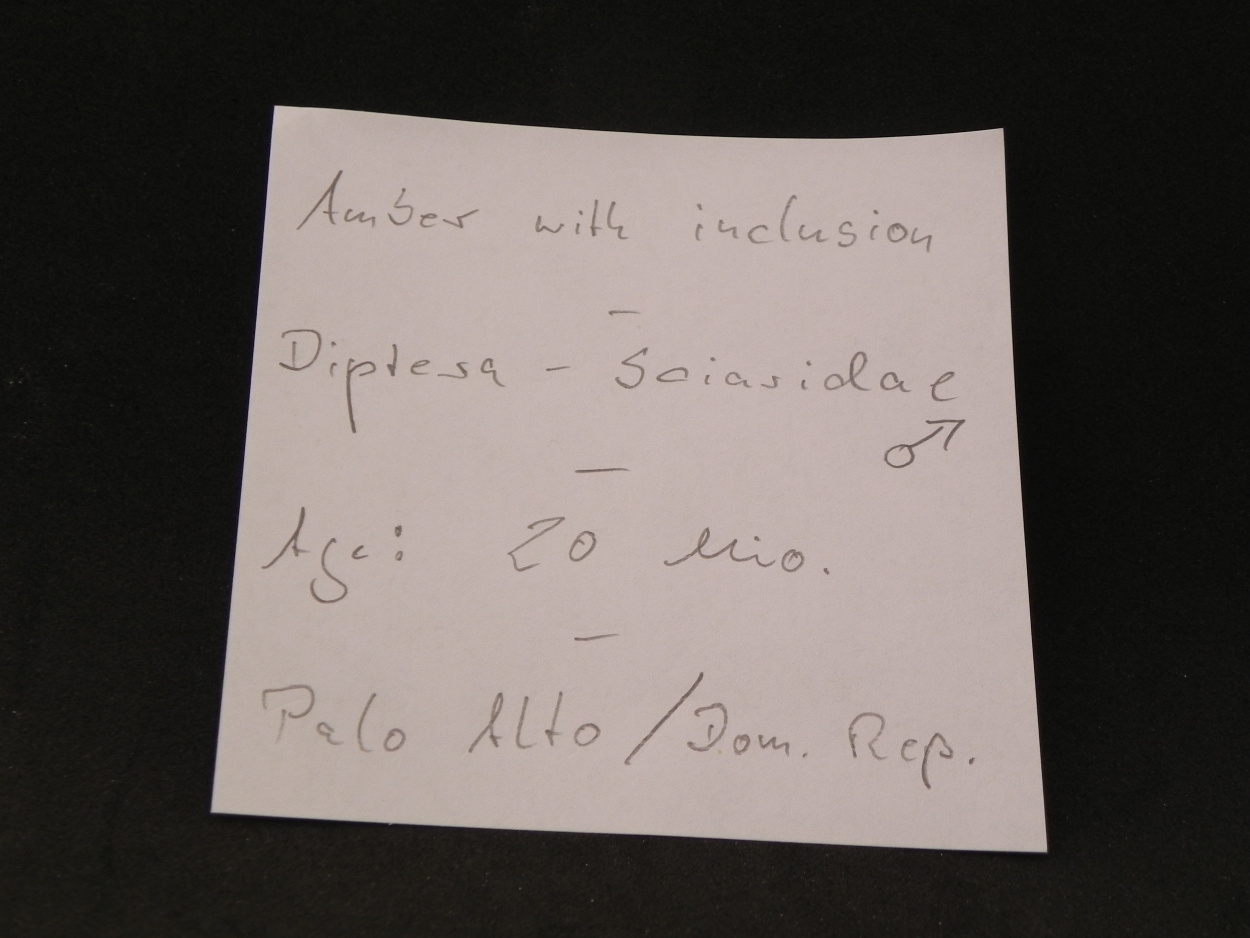 Amber with inclusion
–
Diptera - Sciaridae
♂
–
Age: 20 Mio.
–
Palo Alto / Dom. Rep.